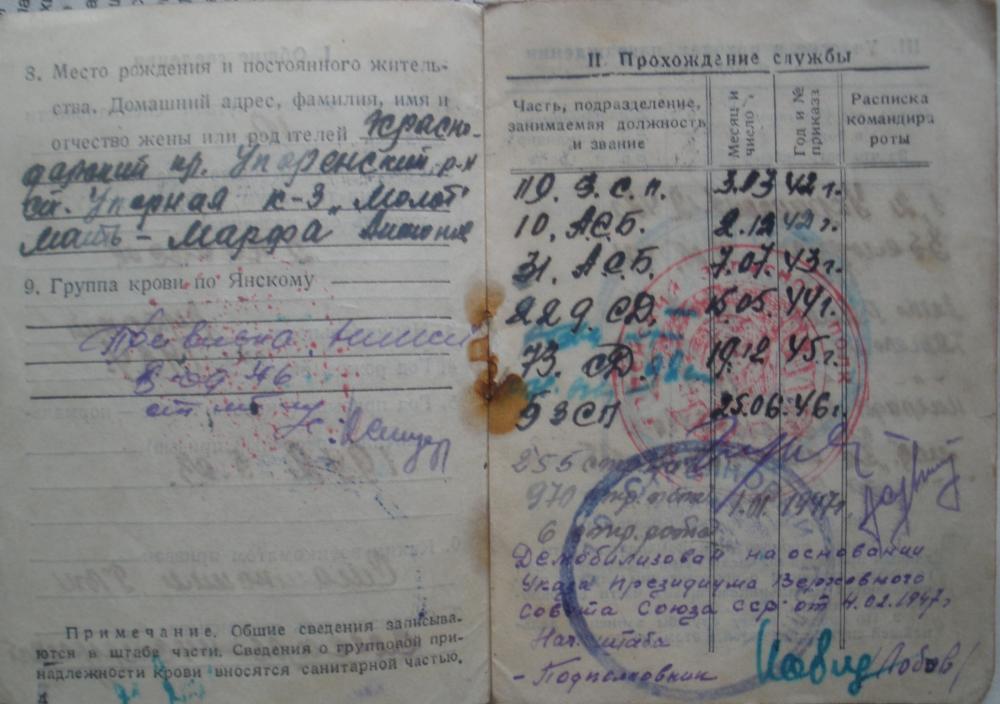 8. Место рождения и постоянного житель-
ства. Домашний адрес, фамилия, имя и
отчество жены или родителей Красно-
дарский кр. Упоренский р-н
ст. Упорная к-з „Молот"
Мать - Марфа
9. Группа крови по Янскому
46
Примечание. Общие сведения записыва-
ются в штабе части. Сведения о групповой при-
надлежности крови вносятся санитарной частью.
4
II. Прохождение службы
Часть, подразделение, занимаемая должность и звание
Месяц и число
Год и № приказа
Расписка командира роты
119. З.С.П. 3.03 42 г.
10. АСБ. 2.12 42 г.
31. АСБ. 7.07. 43 г.
229. СД. 15.05. 44 г.
73. СД 19.12 45 г.
53 СП 25.06. 46 г.
255
970 1.01. 1947 г.
6 стр. рота
Демобилизован на основании
Указа Президиума Верховного
Совета Союза ССР от 4.02.1947 г
Нач. штаба
- Подполковник /Лобов/